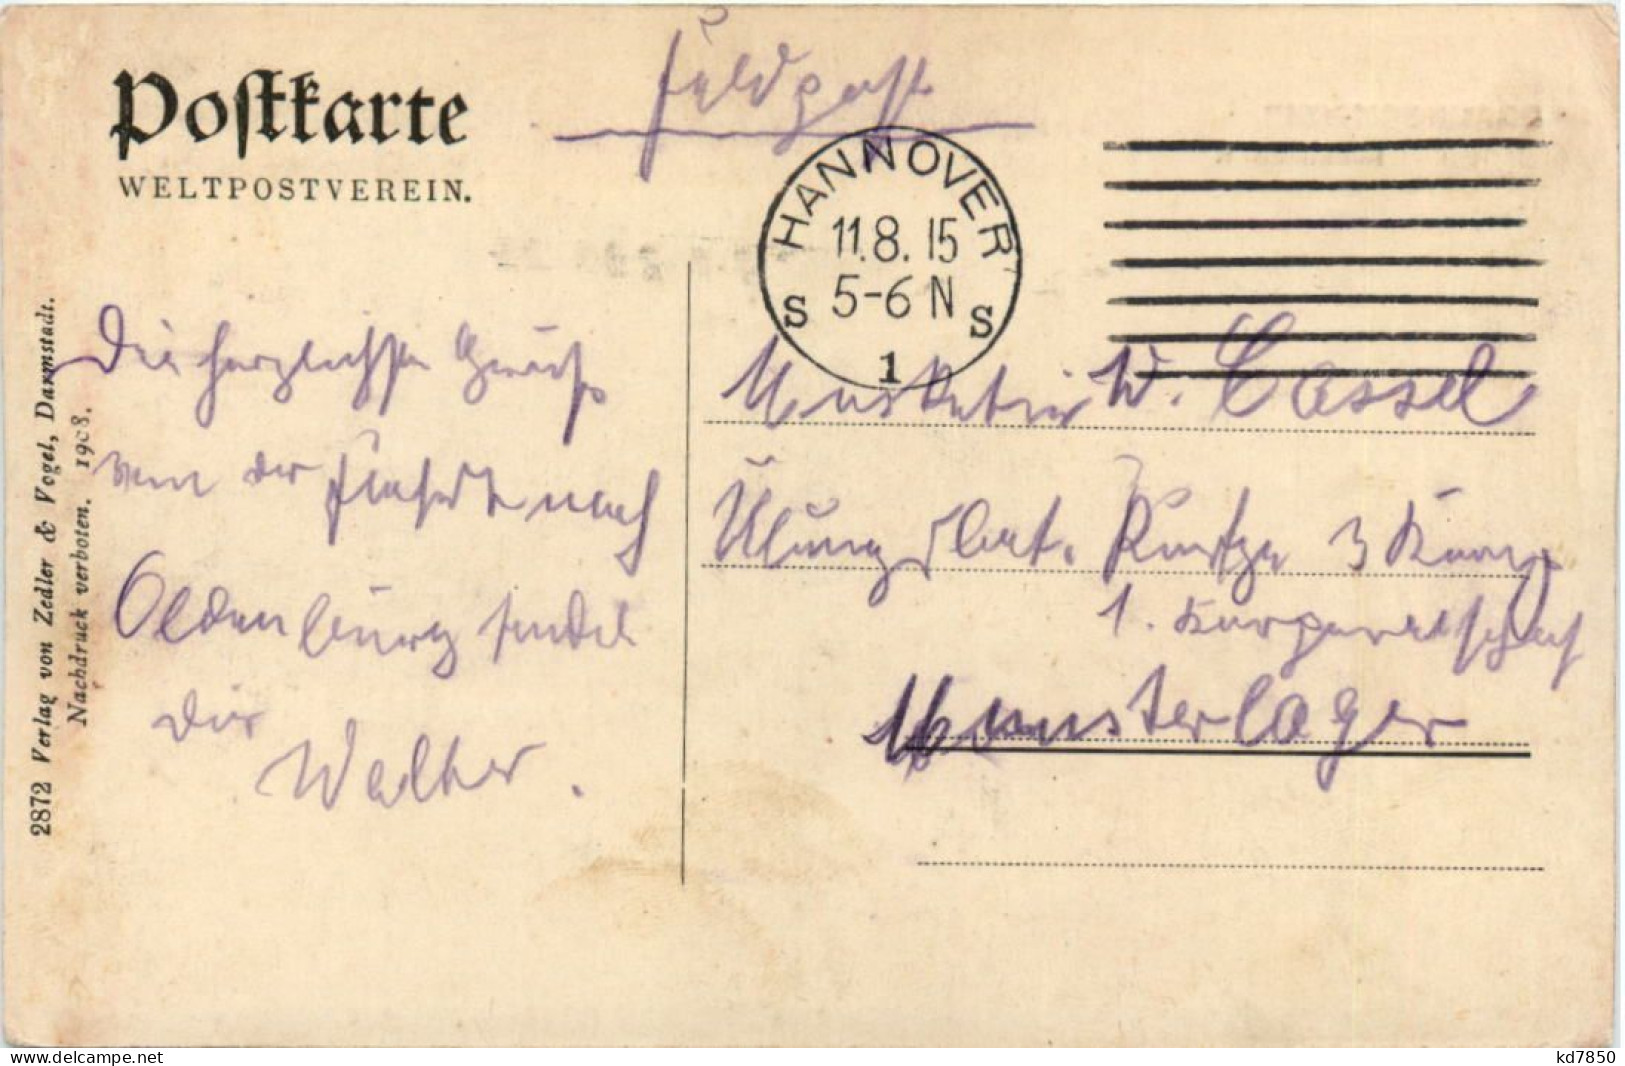 Postkarte
WELTPOSTVEREIN.
Feldpost
HANNOVER
11.8.15
5-6 N
S S
1
Die herzlichsten Grüße
von der Fahrt nach
Oldenburg sendet
Dir
Walther.
Musketier W. Cassel
Übungsbat. 3 Komp.
1. Korporalschaft
Munsterlager
2872 Verlag von Zedler & Vogel, Darmstadt.
Nachdruck verboten. 1908.
kd7850